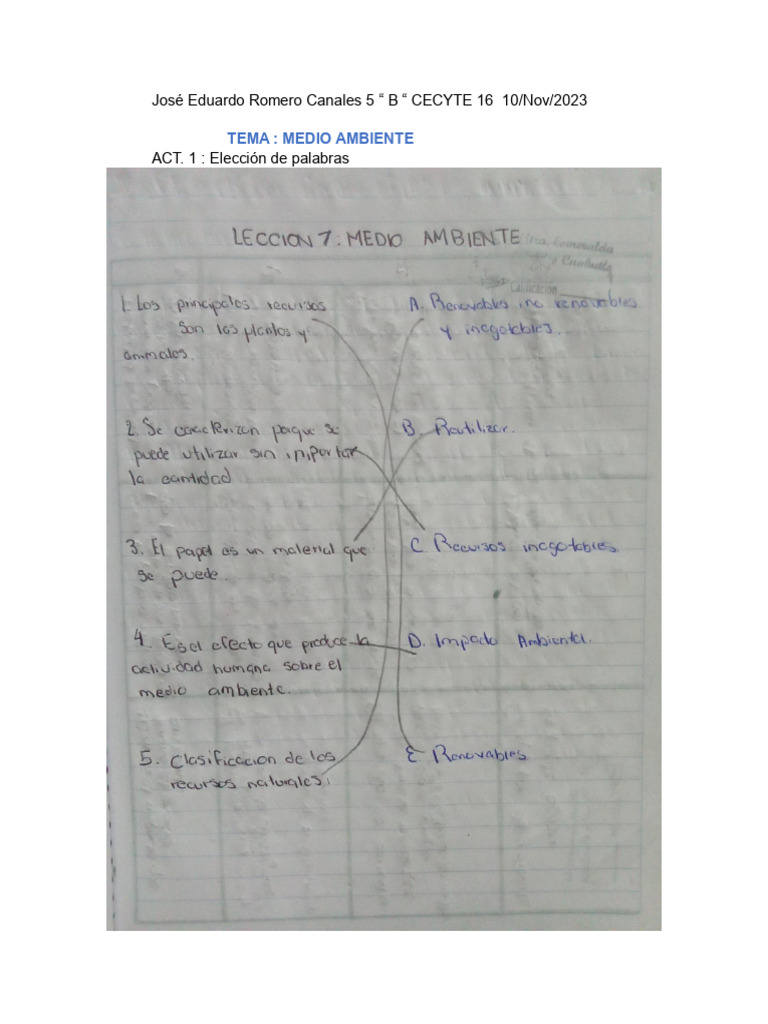 José Eduardo Romero Canales 5 “ B “ CECYTE 16 10/Nov/2023
TEMA : MEDIO AMBIENTE
ACT. 1 : Elección de palabras
LECCION 7: MEDIO AMBIENTE
Esmeralda
Calificación
1. Los principales recursos
son las plantas y
animales.
A. Renovables, no renovables
y inagotables.
2. Se caracterizan porque se
puede utilizar sin importar
la cantidad
B. Reutilizar.
3. El papel es un material que
se puede.
C Recursos inagotables
4. Es el efecto que produce la
actividad humana sobre el
medio ambiente.
D. Impacto Ambiental.
5. Clasificacion de los
recursos naturales.
E Renovables